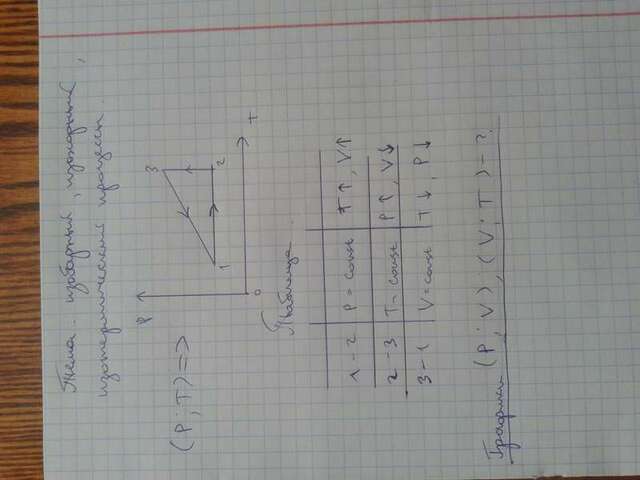 Тема: изобарный, изохорный,
изотермический процессы.
(P; T) =>
P
3
1
2
0
T
Таблица.
1-2 P = const T↑, V↑
2-3 T - const P↑, V↓
3-1 V = const T↓, P↓
Графики (P; V); (V; T) - ?